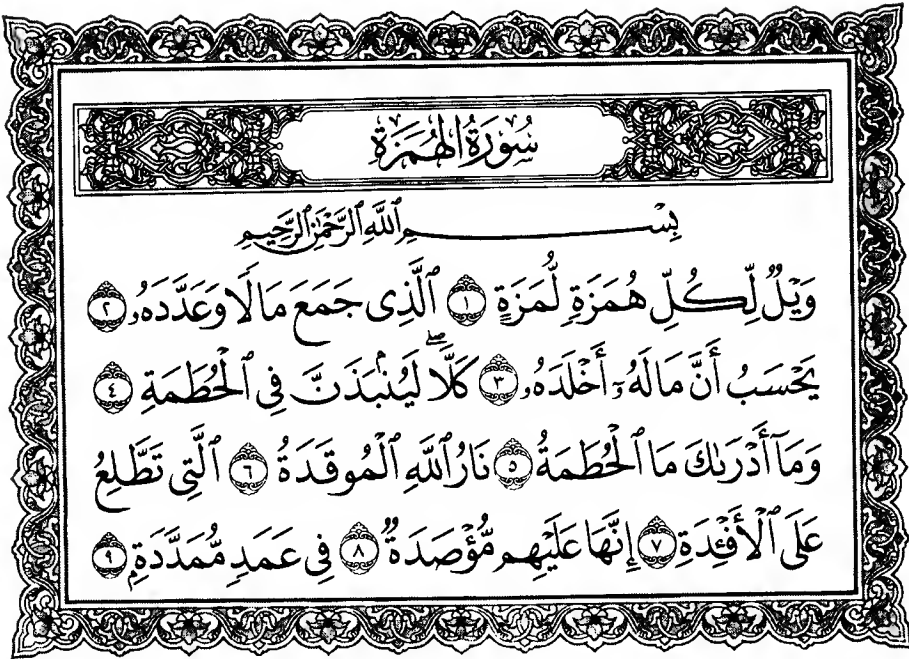 سُورَةُ الْهُمَزَةِ
بِسْمِ ٱللَّهِ ٱلرَّحْمَٰنِ ٱلرَّحِيمِ
وَيْلٌ لِّكُلِّ هُمَزَةٍ لُّمَزَةٍ ١ ٱلَّذِى جَمَعَ مَالًا وَعَدَّدَهُۥ ٢
يَحْسَبُ أَنَّ مَالَهُۥٓ أَخْلَدَهُۥ ٣ كَلَّاۖ لَيُنۢبَذَنَّ فِى ٱلْحُطَمَةِ ٤
وَمَآ أَدْرَىٰكَ مَا ٱلْحُطَمَةُ ٥ نَارُ ٱللَّهِ ٱلْمُوقَدَةُ ٦ ٱلَّتِى تَطَّلِعُ
عَلَى ٱلْأَفْـِٔدَةِ ٧ إِنَّهَا عَلَيْهِم مُّؤْصَدَةٌ ٨ فِى عَمَدٍ مُّمَدَّدَةٍۭ ٩